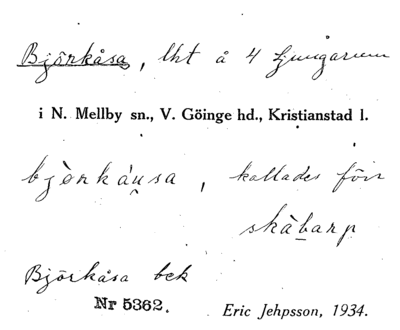 Björkåsa, lht å 4 Ljungarum
i N. Mellby sn., V. Göinge hd., Kristianstad l.
bjònkáu̯sa, kallades förr
skàbarp
Björkåsa bck
Nr 5362.
Eric Jehpsson, 1934.